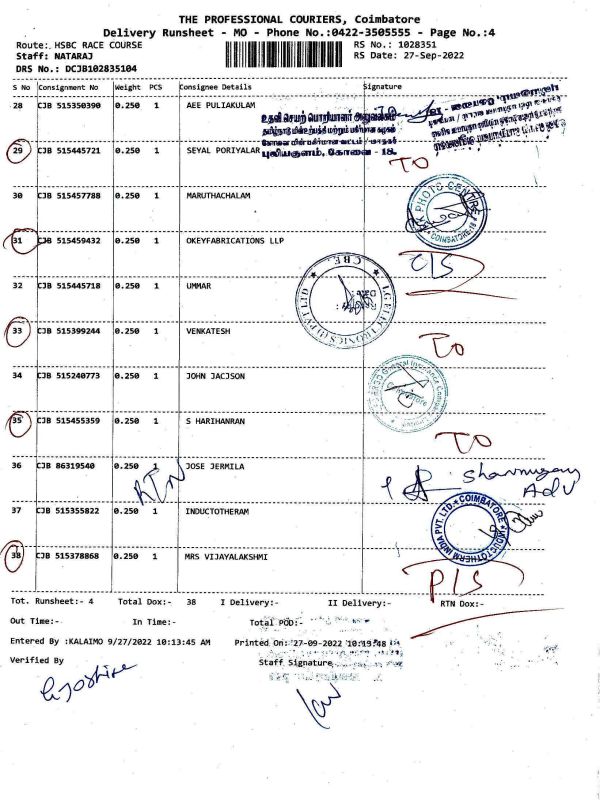 THE PROFESSIONAL COURIERS, Coimbatore
Delivery Runsheet - MO - Phone No.:0422-3505555 - Page No.:4
Route: HSBC RACE COURSE RS No.: 1028351
Staff: NATARAJ RS Date: 27-Sep-2022
DRS No.: DCJB102835104
S No Consignment No Weight PCS Consignee Details Signature
28 CJB 515350390 0.250 1 AEE PULIAKULAM
உதவி செயற் பொறியாளர் அலுவலகம்
29 CJB 515445721 0.250 1 SEYAL PORIYALAR
புலியகுளம், கோவை - 18.
TO
30 CJB 515457788 0.250 1 MARUTHACHALAM
PHOTO CENTRE
COIMBATORE
31 CJB 515459432 0.250 1 OKEYFABRICATIONS LLP
C/S
32 CJB 515445718 0.250 1 UMMAR
CBE.
33 CJB 515399244 0.250 1 VENKATESH
TO
34 CJB 515240773 0.250 1 JOHN JACJSON
General Insurance
Coimbatore
35 CJB 515455359 0.250 1 S HARIHANRAN
TO
36 CJB 86319540 0.250 1 JOSE JERMILA
RTN
Adv
37 CJB 515355822 0.250 1 INDUCTOTHERAM
INDUCTOTHERM INDIA PVT. LTD. COIMBATORE
38 CJB 515378868 0.250 1 MRS VIJAYALAKSHMI
P/S
Tot. Runsheet:- 4 Total Dox:- 38 I Delivery:- II Delivery:- RTN Dox:-
Out Time:- In Time:- Total POD:-
Entered By :KALAIMO 9/27/2022 10:13:45 AM Printed On: 27-09-2022 10:13:48
Verified By Staff Signature